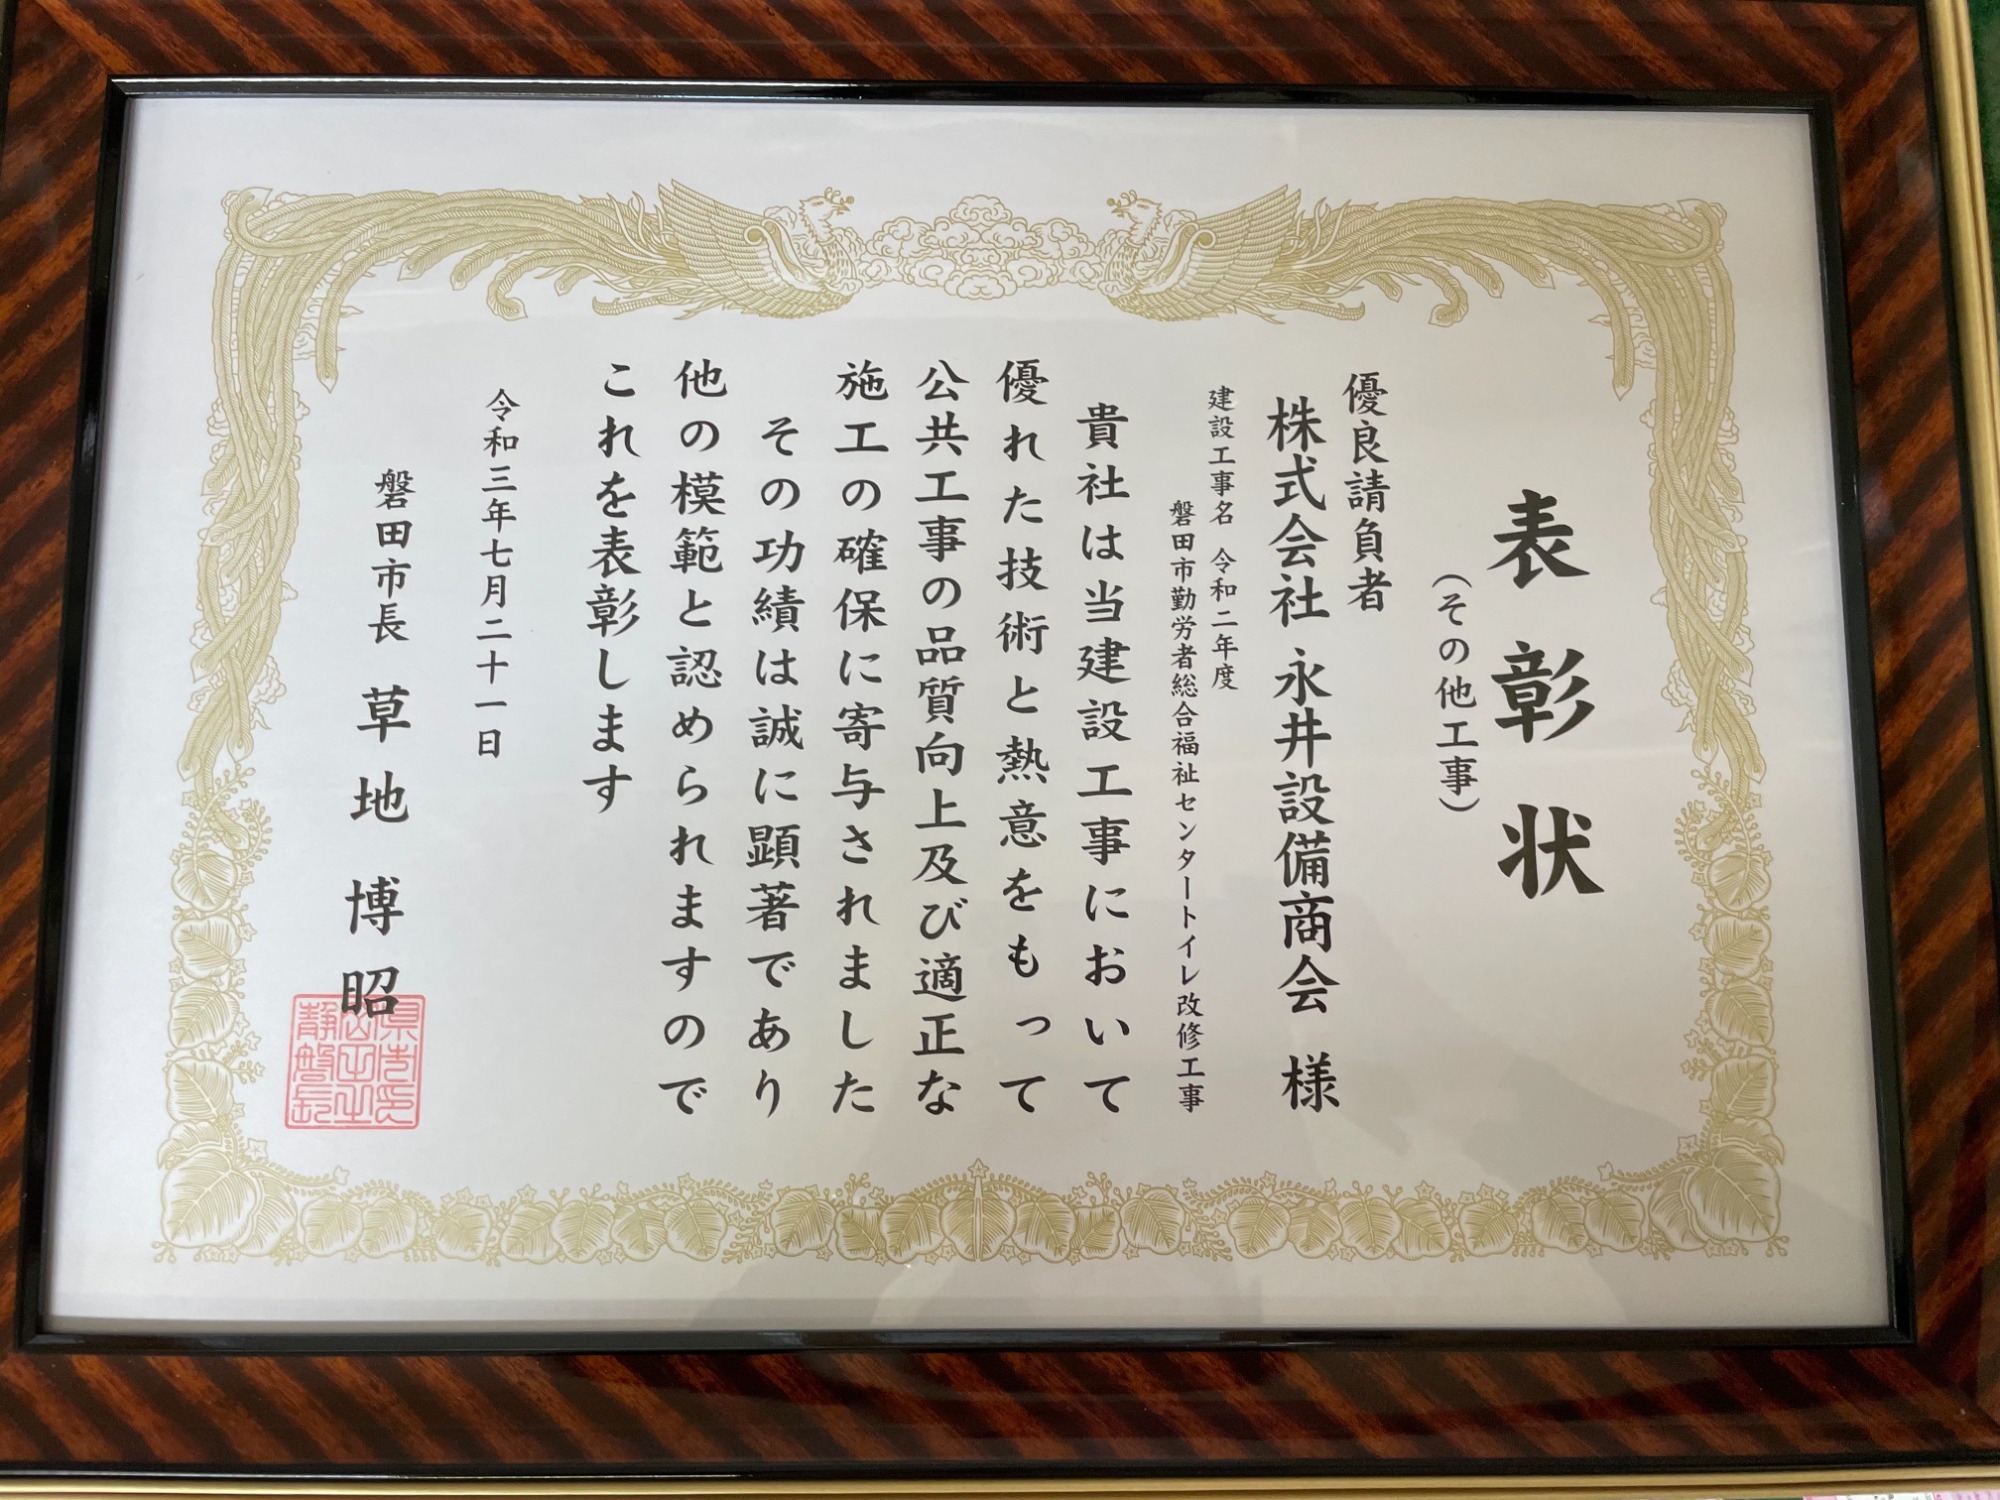 表彰状
（その他工事）
優良請負者
株式会社 永井設備商会 様
建設工事名 令和二年度
磐田市勤労者総合福祉センタートイレ改修工事
貴社は当建設工事において
優れた技術と熱意をもって
公共工事の品質向上及び適正な
施工の確保に寄与されました
その功績は誠に顕著であり
他の模範と認められますので
これを表彰します
令和三年七月二十一日
磐田市長 草地博昭